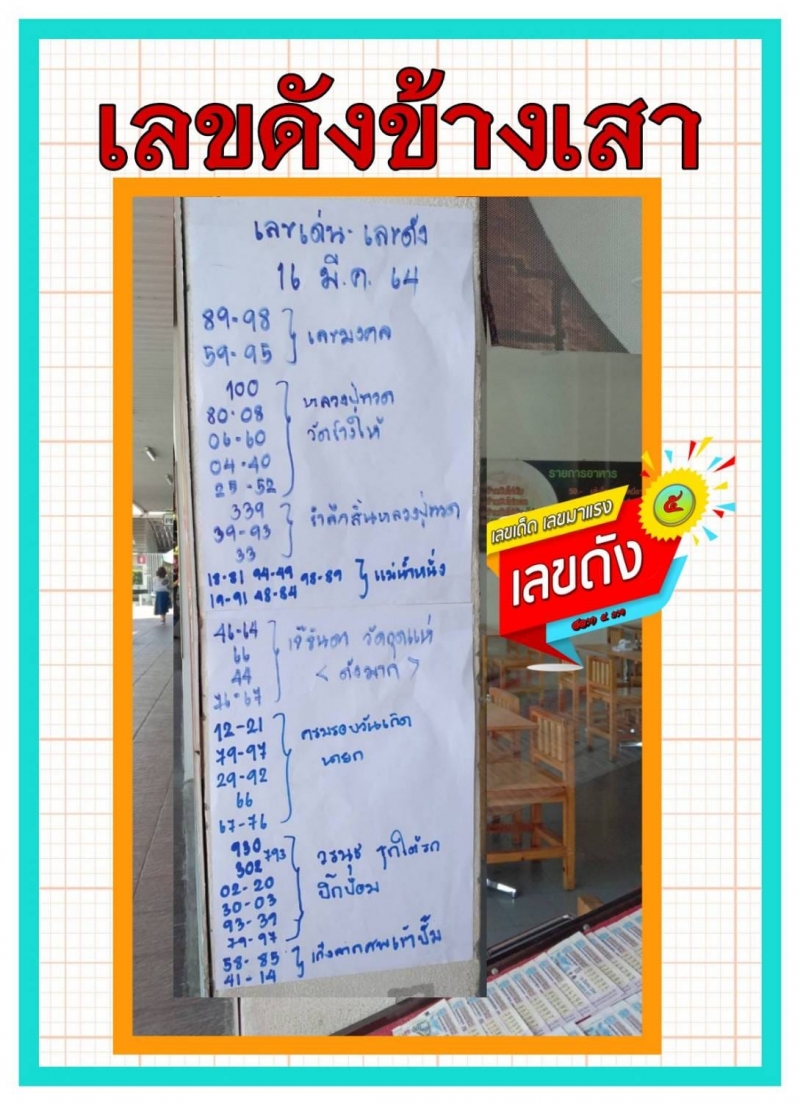 เลขดังข้างเสา
เลขเด่น-เลขดัง
16 มี.ค. 64
89-98
59-95
เลขมงคล
100
80-08
06-60
04-40
25-52
หลวงปู่ทวด
วัดช้างให้
339
39-93
33
รำลึกสิ้นหลวงปู่ทวด
18-81 94-49 98-89
19-91 48-84
แม่น้ำหนึ่ง
46-64
66
44
76-67
<ดังมาก>
12-21
79-97
29-92
66
67-76
ครบรอบวันเกิด
นายก
930
793
302
02-20
30-03
93-39
79-97
วรนุช
บิ๊กป้อม
58-85
41-14
รายการอาหาร
เลขเด็ด เลขมาแรง
เลขดัง
๕